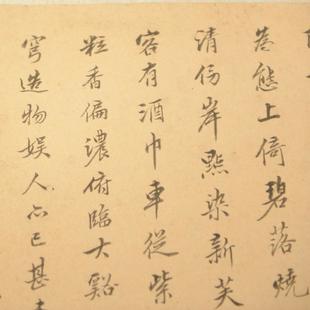 態上倚碧落燒
清傍岸點染新芙
容有酒巾車從紫
粒香偏濃俯臨大谿
穹造物娱人亦已甚